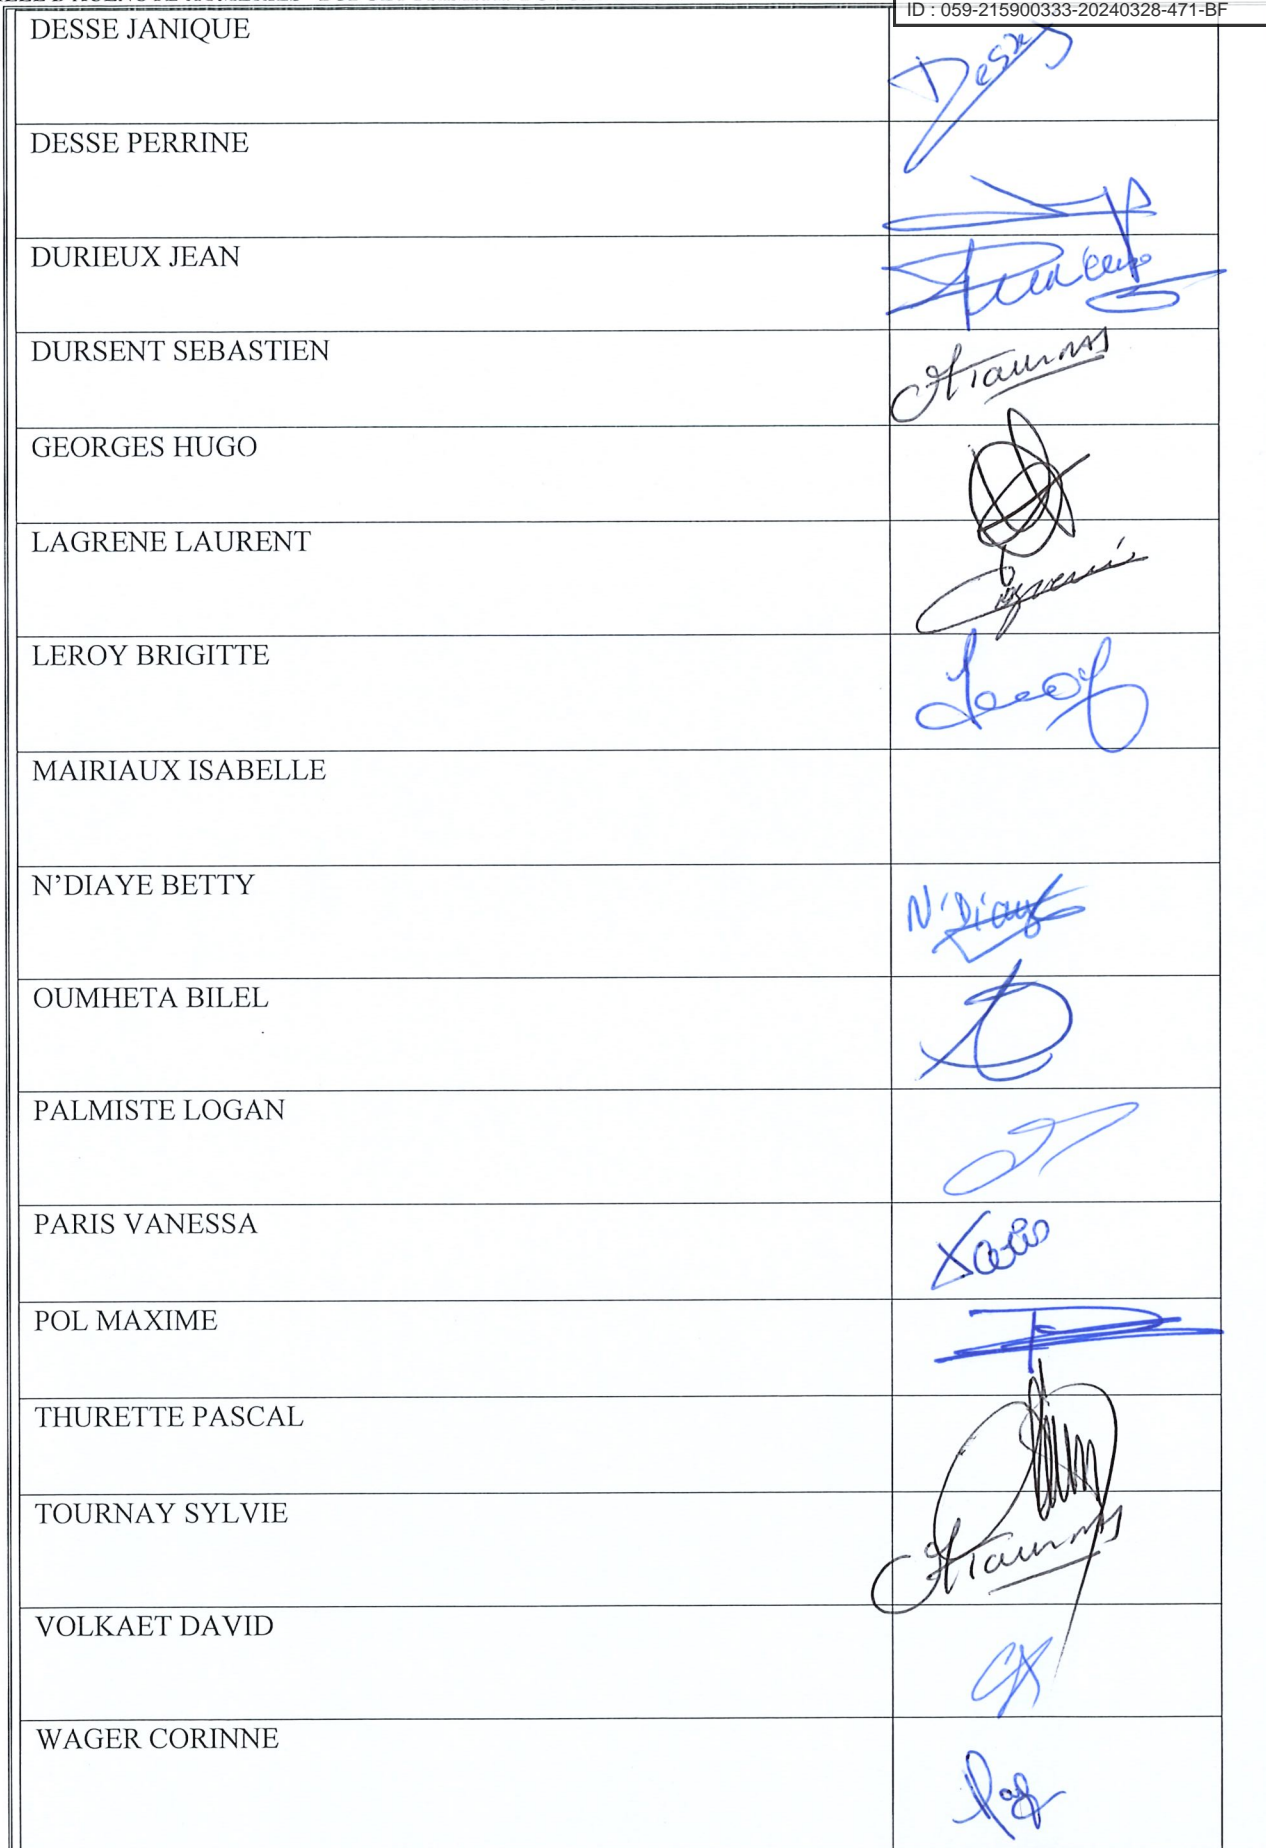 ID : 059-215900333-20240328-471-BF
DESSE JANIQUE
DESSE PERRINE
DURIEUX JEAN
DURSENT SEBASTIEN
GEORGES HUGO
LAGRENE LAURENT
LEROY BRIGITTE
MAIRIAUX ISABELLE
N’DIAYE BETTY
N'Diaye
OUMHETA BILEL
PALMISTE LOGAN
PARIS VANESSA
POL MAXIME
THURETTE PASCAL
TOURNAY SYLVIE
VOLKAET DAVID
WAGER CORINNE